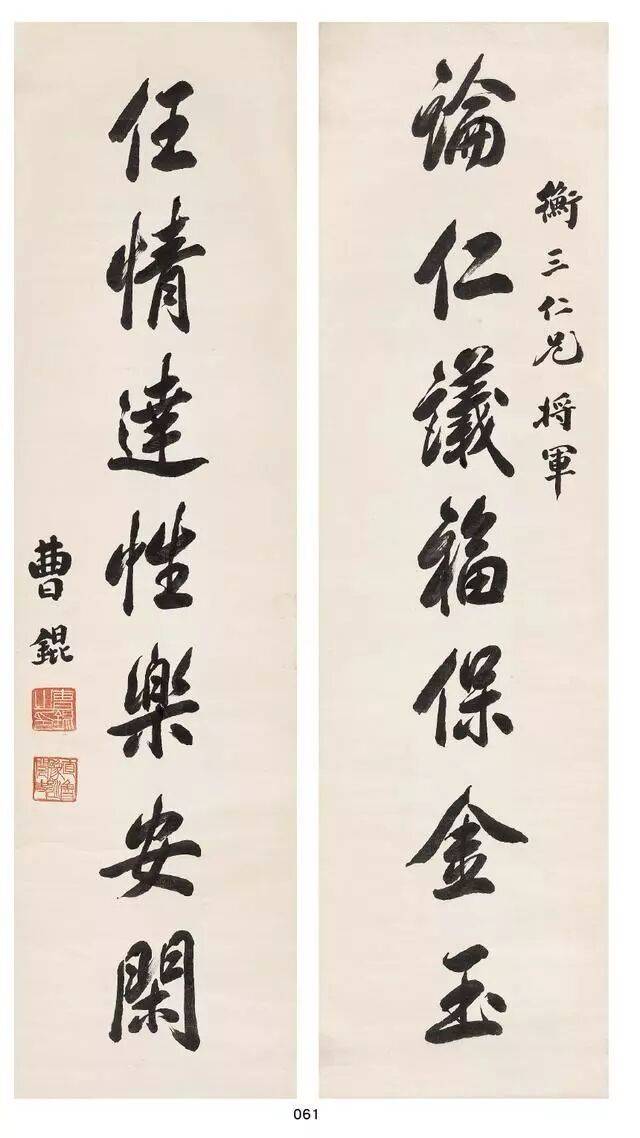 論仁議福保金玉
衡三仁兄將軍
任情達性樂安閑
曹錕
061